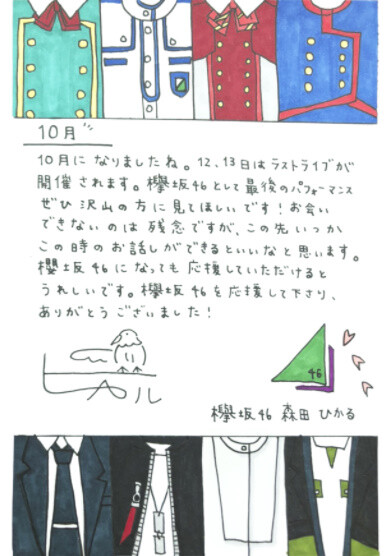 10月
10月になりましたね。12、13日はラストライブが
開催されます。欅坂46として最後のパフォーマンス
ぜひ沢山の方に見てほしいです！お会い
できないのは残念ですが、この先いつか
この時のお話しができるといいなと思います。
櫻坂46になっても応援していただけると
うれしいです。欅坂46を応援して下さり、
ありがとうございました！
ひかる
46
欅坂46 森田 ひかる